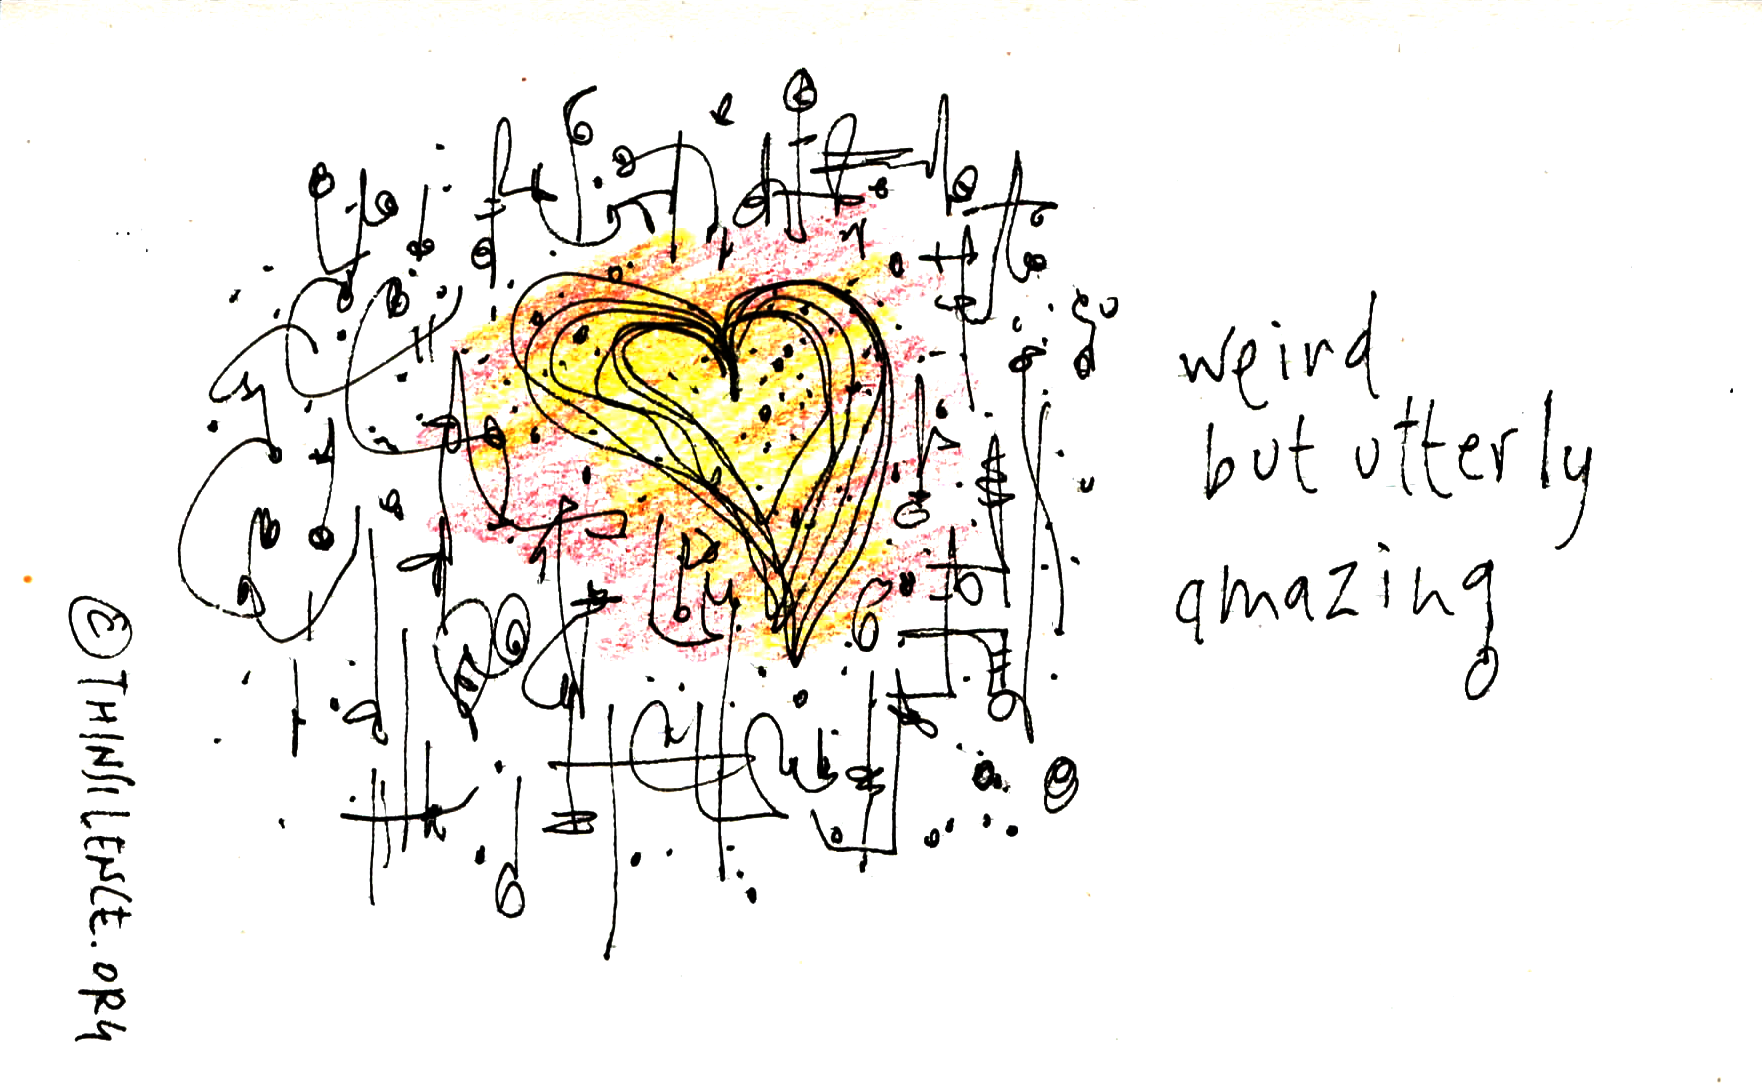 weird
but utterly
amazing
©THINSILENCE.ORG